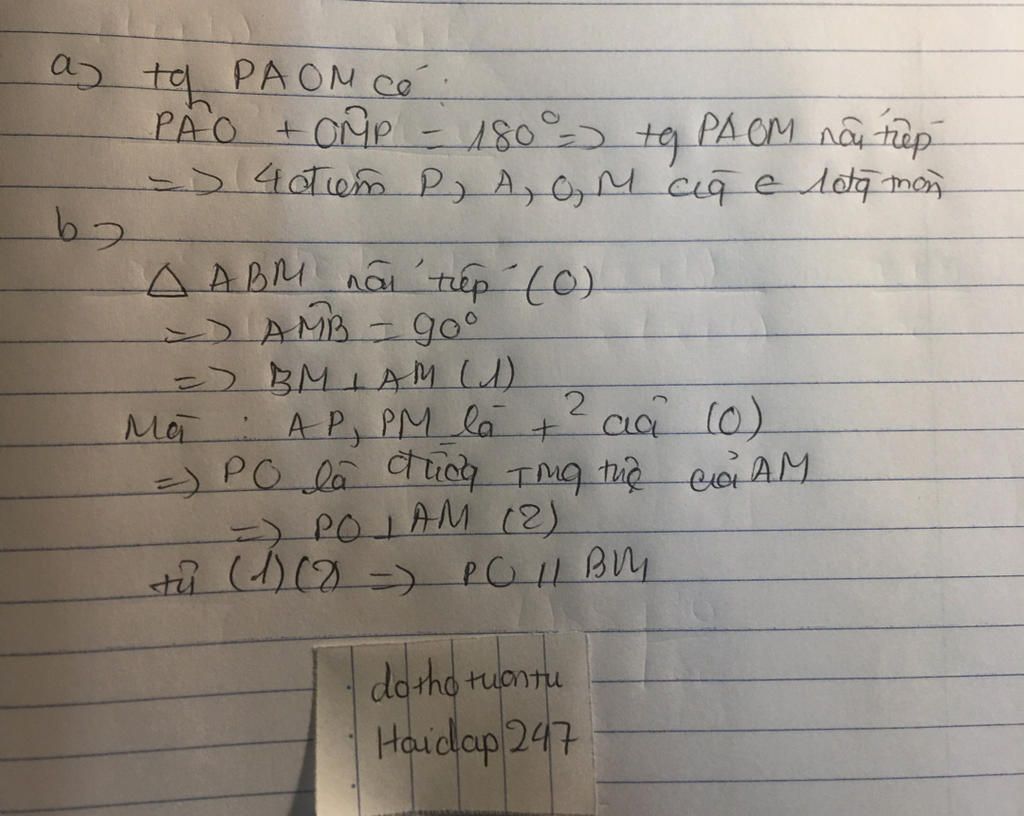 a) tg PAOM có :
PÂO + OM̂P = 180° => tg PAOM nội tiếp
=> 4 điểm P, A, O, M cùg e 1 đg tròn
b)
△ ABM nội tiếp (O)
=> AM̂B = 90°
=> BM ⊥ AM (1)
Mà : AP, PM là t² của (O)
=> PO là đường trug trực của AM
=> PO ⊥ AM (2)
từ (1)(2) => PO // BM
dothotuontu
Hoidap247